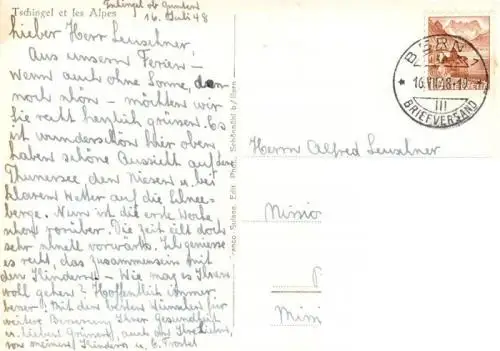 Tschingel et les Alpes
Tschingel ob Gunten
16. Juli 48
Lieber Herr Leuschner,
Aus unsern Ferien –
wenn auch ohne Sonne, den-
noch schön – möchten wir
Sie recht herzlich grüssen. Es
ist wunderschön hier oben
haben schöne Aussicht auf den
Thunersee den Niesen u. bei
klarem Wetter auf die Schnee-
berge. Nun ist die erste Woche
schon vorüber. Die Zeit eilt doch
sehr schnell vorwärts. Ich geniesse
es recht, das Zusammensein mit
den Kindern – Wie mag es Ihnen
wohl gehen? Hoffentlich immer
besser? Mit den besten Wünschen für
weitere Besserung Ihrer Gesundheit
u. lieben Grüssen, auch an Ihre
von meinen Kindern u. E. Trostel
Franco-Suisse, Edit. Phot., Schönbühl b/Bern
BERN 1
16.VII.48-19
III
BRIEFVERSAND
Herrn Alfred Leuschner
Missio
P
Missi